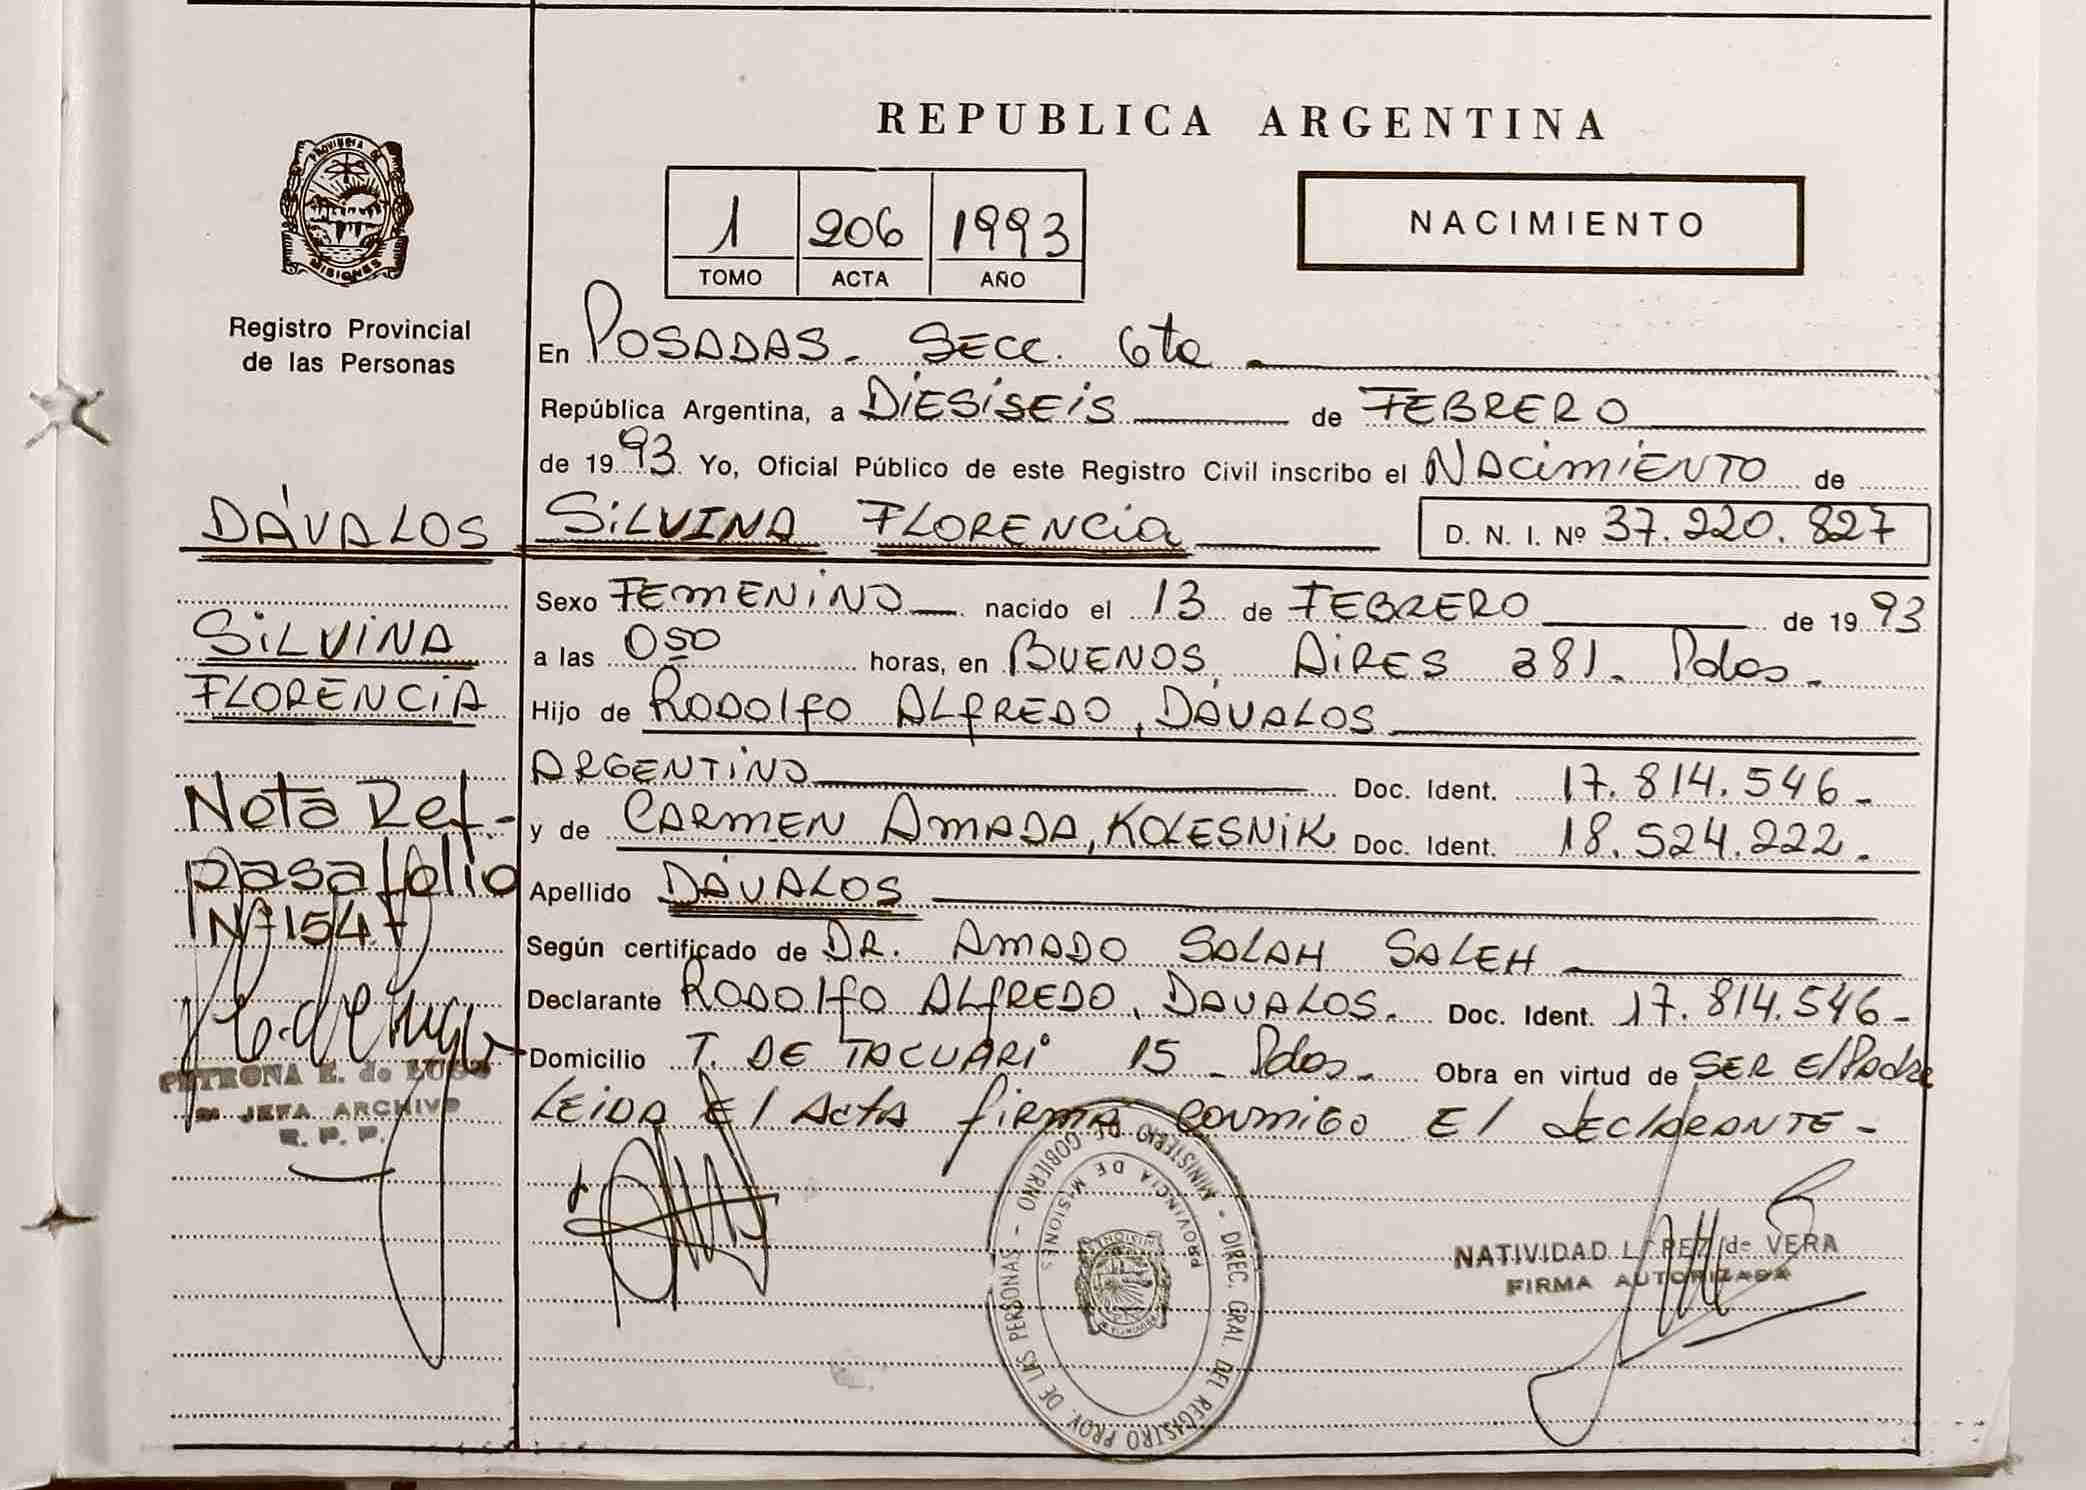 REPUBLICA ARGENTINA
PROVINCIA DE
MISIONES
Registro Provincial
de las Personas
1 206 1993
TOMO ACTA AÑO
NACIMIENTO
En POSADAS. SECC. 6ta
República Argentina, a DIESISEIS de FEBRERO
de 1993. Yo, Oficial Público de este Registro Civil inscribo el NACIMIENTO de
DÁVALOS SILVINA FLORENCIA D. N. I. Nº 37.220.827
Sexo FEMENINO nacido el 13 de FEBRERO de 1993
a las 0:50 horas, en BUENOS AIRES 381. Pdas.
Hijo de RODOLFO ALFREDO, DÁVALOS
ARGENTINO Doc. Ident. 17.814.546-
y de CARMEN AMADA, KOLESNIK Doc. Ident. 18.524.222.
Apellido DÁVALOS
Según certificado de DR. AMADO SALAH SALEH
Declarante RODOLFO ALFREDO, DAVALOS. Doc. Ident. 17.814.546-
Domicilio T. DE TACUARI 15 - Pdas. Obra en virtud de SER El Padre
LEIDA El Acta firma conmigo El declARANTE-
SILVINA
FLORENCIA
Nota Ref.-
pasa folio
Nº 154
PETRONA E. de LUGO
JEFA ARCHIVO
R. P. P.
MINISTERIO DE GOBIERNO - DIREC. GRAL. DEL REGISTRO PROV. DE LAS PERSONAS -
PROVINCIA DE MISIONES
NATIVIDAD LOPEZ de VERA
FIRMA AUTORIZADA